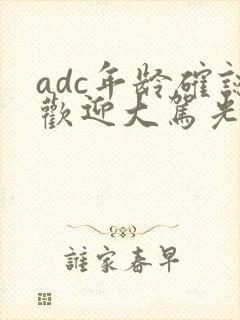 adc年龄確認
歡迎大駕光
誰家春早